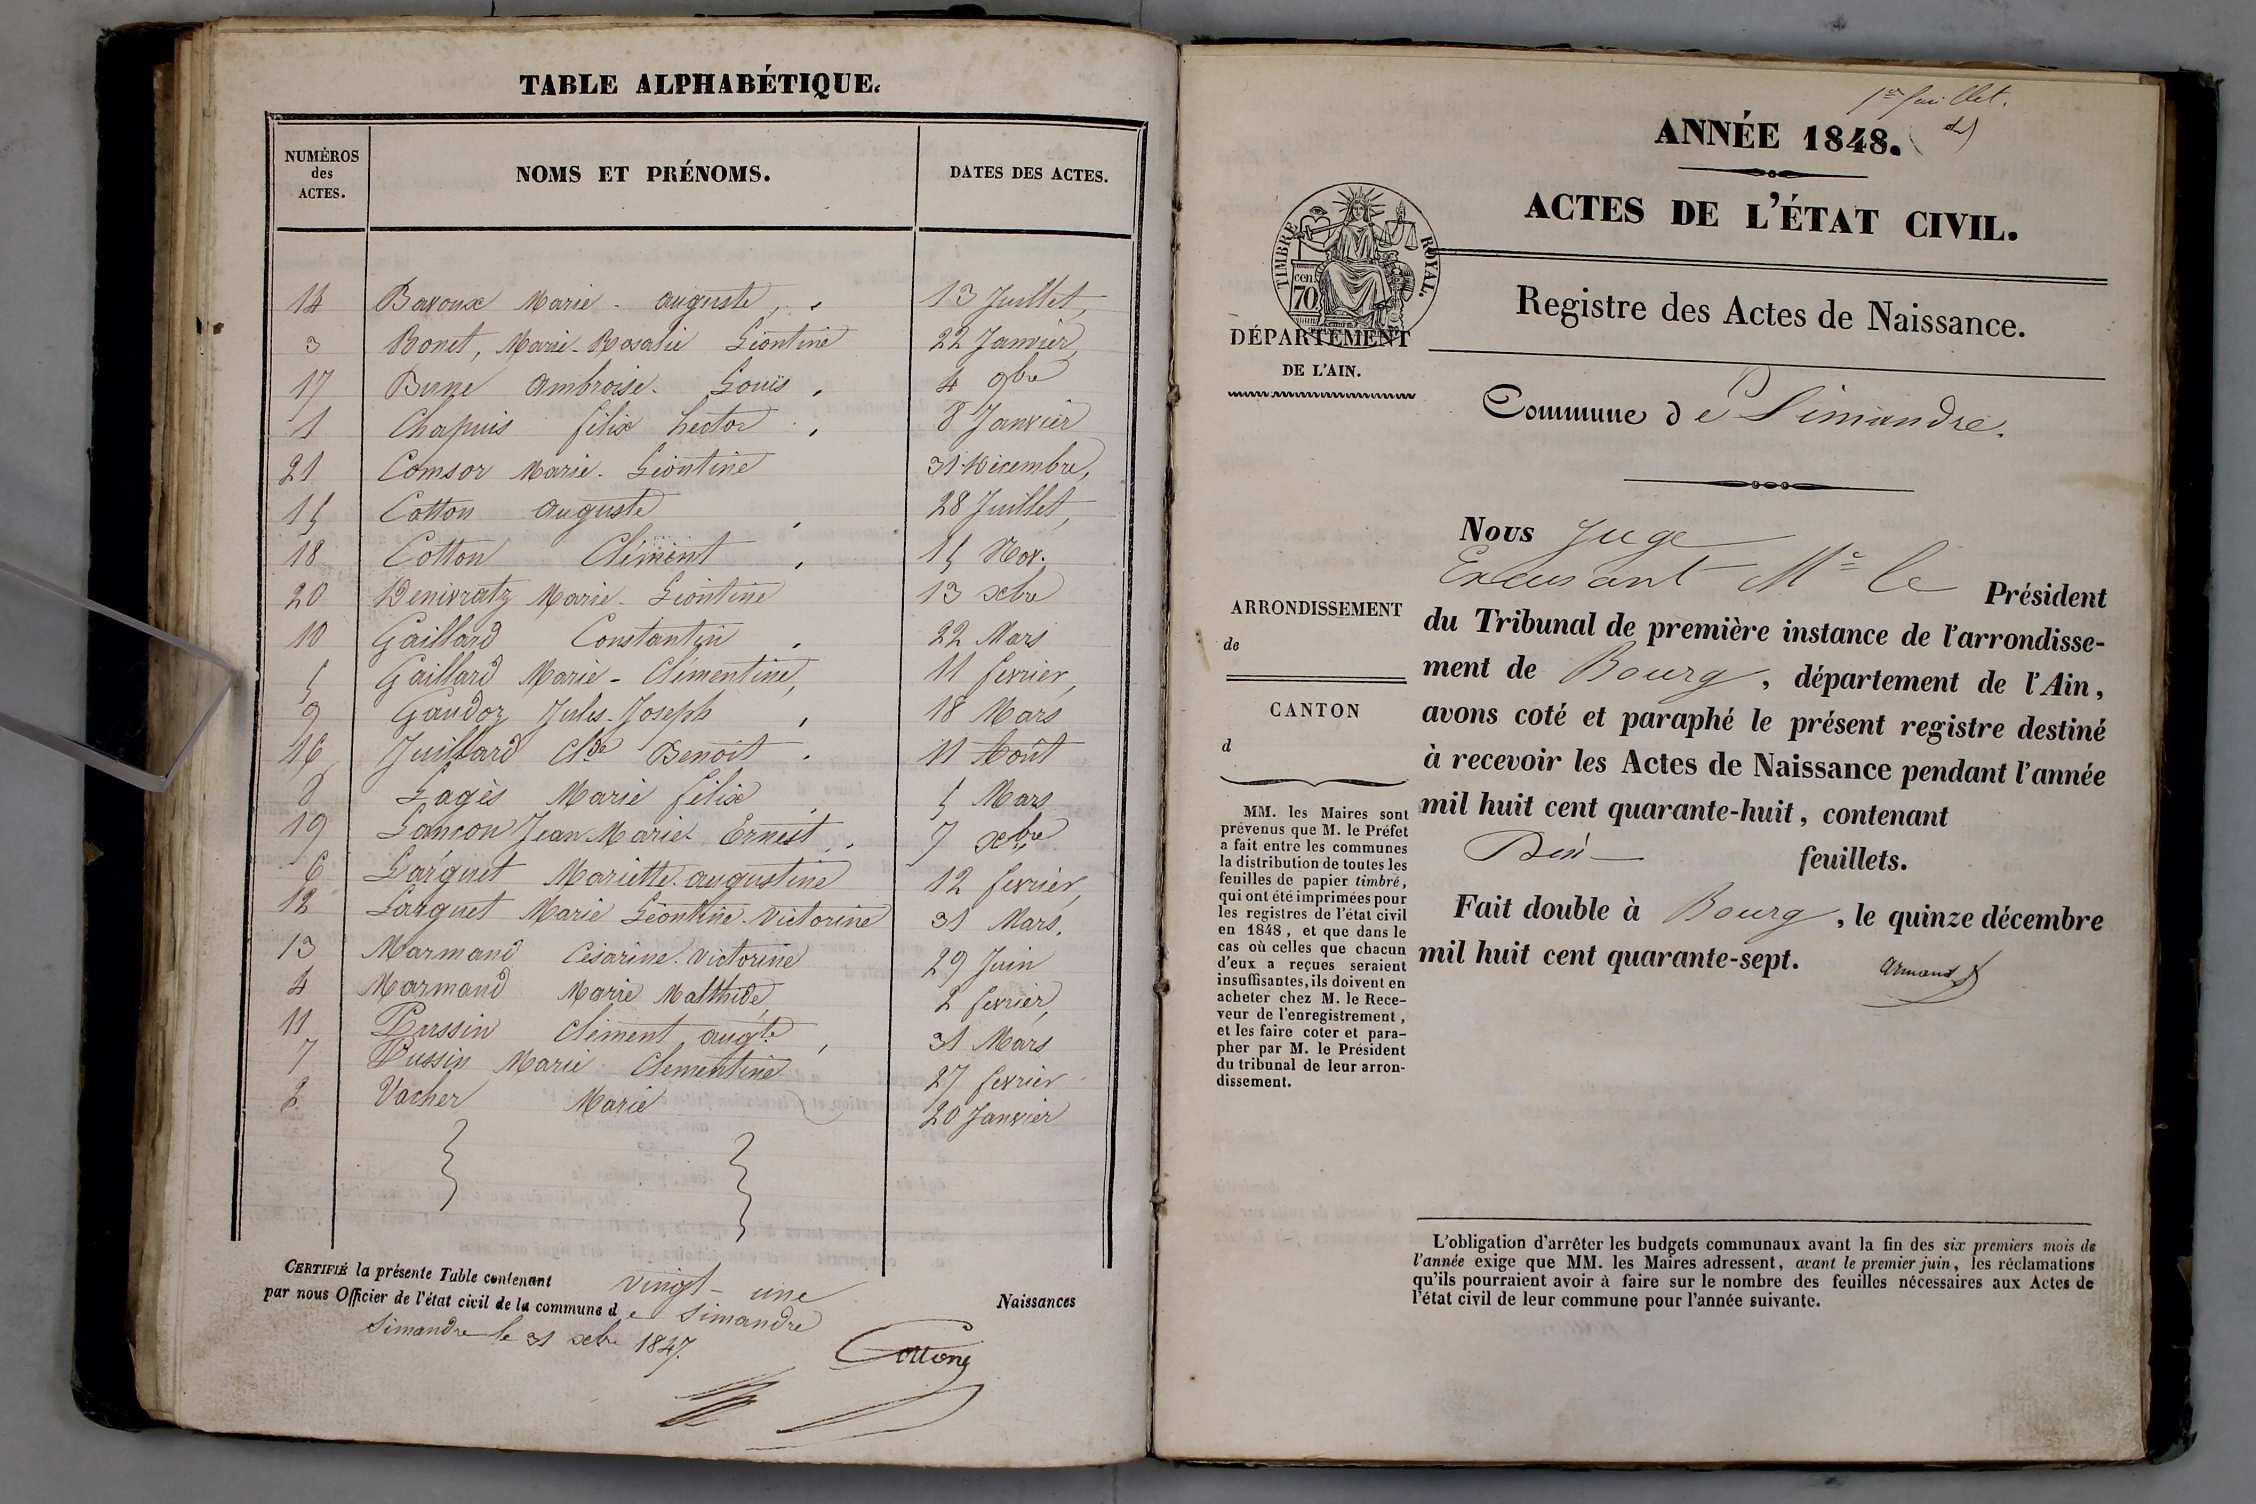 TABLE ALPHABÉTIQUE.
NUMÉROS des ACTES. NOMS ET PRÉNOMS. DATES DES ACTES.
14 Baroux Marie - auguste, 13 Juillet,
3 Bonet, Marie-Rosalie Léontine 22 Janvier,
17 Burne ambroise - Louis, 4 9bre
1 Chapuis félix hector, 8 Janvier
21 Comsor Marie - Léontine 31 Décembre,
15 Cotton auguste, 28 Juillet,
18 Cotton Clément, 15 Nov.
20 Marie - Léontine 13 xbre
10 Gaillard Constantin, 22 Mars
5 Gaillard Marie - Clémentine, 11 fevrier,
9 Gaudoz Jules-Joseph, 18 Mars
16 Juillard Cl.de Benoit, 11 Août
8 Lagès Marie félix, 5 Mars
19 Lancon Jean Marie Ernest, 7 xbre
6 Larguet Mariette augustine 12 fevrier,
12 Larguet Marie Léontine-Victorine 31 Mars.
13 Marmand Césarine-Victorine 29 Juin
4 Marmand Marie Malthide, 2 fevrier,
11 Pussin Clément augte, 31 Mars
7 Pussin Marie Clementine 27 fevrier
2 Vacher Marie 20 Janvier
CERTIFIÉ la présente Table contenant vingt-une Naissances
par nous Officier de l'état civil de la commune de Simandre
Simandre le 31 xbre 1847.
Cotton
1er feuillet.
ANNÉE 1848.
ACTES DE L'ÉTAT CIVIL.
TIMBRE ROYAL.
cen
70
DÉPARTEMENT
DE L'AIN.
Registre des Actes de Naissance.
Commune de Simandre.
Nous Juge
Excusant Mr le Président
du Tribunal de première instance de l'arrondisse-
ment de Bourg, département de l'Ain,
avons coté et paraphé le présent registre destiné
à recevoir les Actes de Naissance pendant l'année
mil huit cent quarante-huit, contenant
feuillets.
Fait double à Bourg, le quinze décembre
mil huit cent quarante-sept.
Armand
ARRONDISSEMENT
de
CANTON
d
MM. les Maires sont
prévenus que M. le Préfet
a fait entre les communes
la distribution de toutes les
feuilles de papier timbré,
qui ont été imprimées pour
les registres de l'état civil
en 1848, et que dans le
cas où celles que chacun
d'eux a reçues seraient
insuffisantes, ils doivent en
acheter chez M. le Rece-
veur de l'enregistrement,
et les faire coter et para-
pher par M. le Président
du tribunal de leur arron-
dissement.
L'obligation d'arrêter les budgets communaux avant la fin des six premiers mois de
l'année exige que MM. les Maires adressent, avant le premier juin, les réclamations
qu'ils pourraient avoir à faire sur le nombre des feuilles nécessaires aux Actes de
l'état civil de leur commune pour l'année suivante.